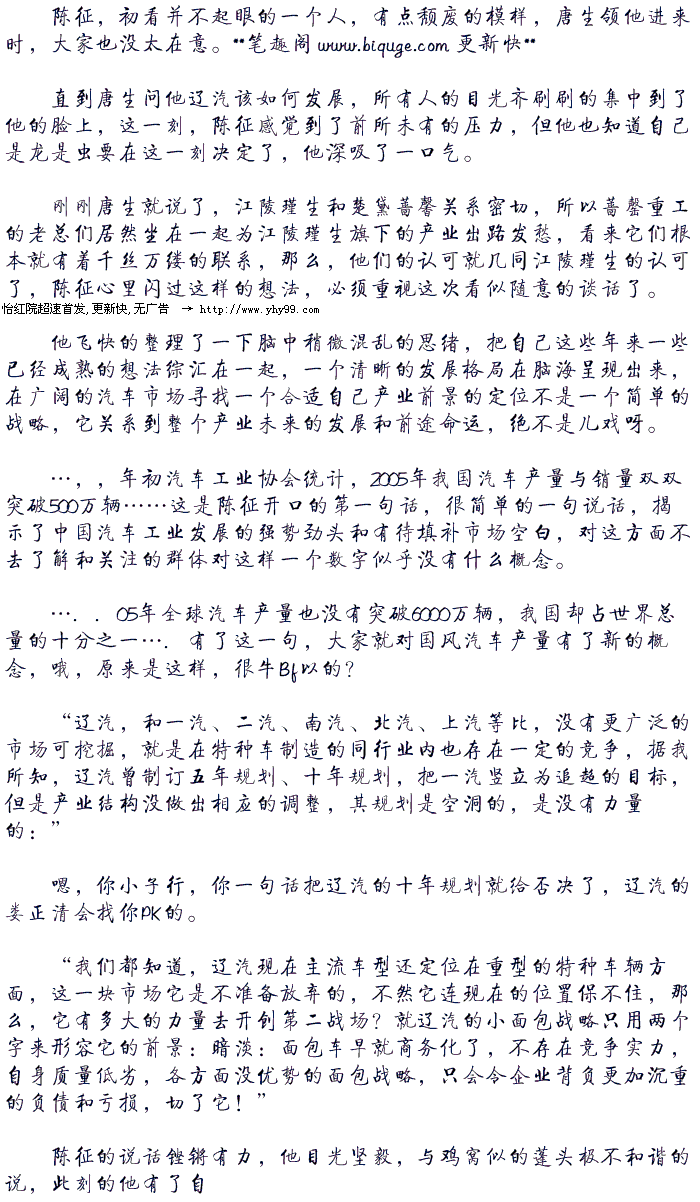 陈征，初看并不起眼的一个人，有点颓废的模样，唐生领他进来
时，大家也没太在意。**笔趣阁www.biquge.com更新快**
直到唐生问他辽汽该如何发展，所有人的目光齐刷刷的集中到了
他的脸上，这一刻，陈征感觉到了前所未有的压力，但他也知道自己
是龙是虫要在这一刻决定了，他深吸了一口气。
刚刚唐生就说了，江陵瑾生和楚黛蔷馨关系密切，所以蔷罄重工
的老总们居然坐在一起为江陵瑾生旗下的产业出路发愁，看来它们根
本就有着千丝万缕的联系，那么，他们的认可就几同江陵瑾生的认可
了，陈征心里闪过这样的想法，必须重视这次看似随意的谈话了。
怡红院超速首发,更新快,无广告 → http://www.yhy99.com
他飞快的整理了一下脑中稍微混乱的思绪，把自己这些年来一些
已经成熟的想法综汇在一起，一个清晰的发展格局在脑海呈现出来，
在广阔的汽车市场寻找一个合适自己产业前景的定位不是一个简单的
战略，它关系到整个产业未来的发展和前途命运，绝不是儿戏呀。
…，，年初汽车工业协会统计，2005年我国汽车产量与销量双双
突破500万辆……这是陈征开口的第一句话，很简单的一句说话，揭
示了中国汽车工业发展的强势劲头和有待填补市场空白，对这方面不
去了解和关注的群体对这样一个数字似乎没有什么概念。
…．．05年全球汽车产量也没有突破6000万辆，我国却占世界总
量的十分之一…．有了这一句，大家就对国风汽车产量有了新的概
念，哦，原来是这样，很牛Bf以的？
“辽汽，和一汽、二汽、南汽、北汽、上汽等比，没有更广泛的
市场可挖掘，就是在特种车制造的同行业内也存在一定的竞争，据我
所知，辽汽曾制订五年规划、十年规划，把一汽竖立为追超的目标，
但是产业结构没做出相应的调整，其规划是空洞的，是没有力量
的：”
嗯，你小子行，你一句话把辽汽的十年规划就给否决了，辽汽的
娄正清会找你PK的。
“我们都知道，辽汽现在主流车型还定位在重型的特种车辆方
面，这一块市场它是不准备放弃的，不然它连现在的位置保不住，那
么，它有多大的力量去开创第二战场？就辽汽的小面包战略只用两个
字来形容它的前景：暗淡：面包车早就商务化了，不存在竞争实力，
自身质量低劣，各方面没优势的面包战略，只会令企业背负更加沉重
的负债和亏损，切了它！”
陈征的说话铿锵有力，他目光坚毅，与鸡窝似的蓬头极不和谐的
说，此刻的他有了自